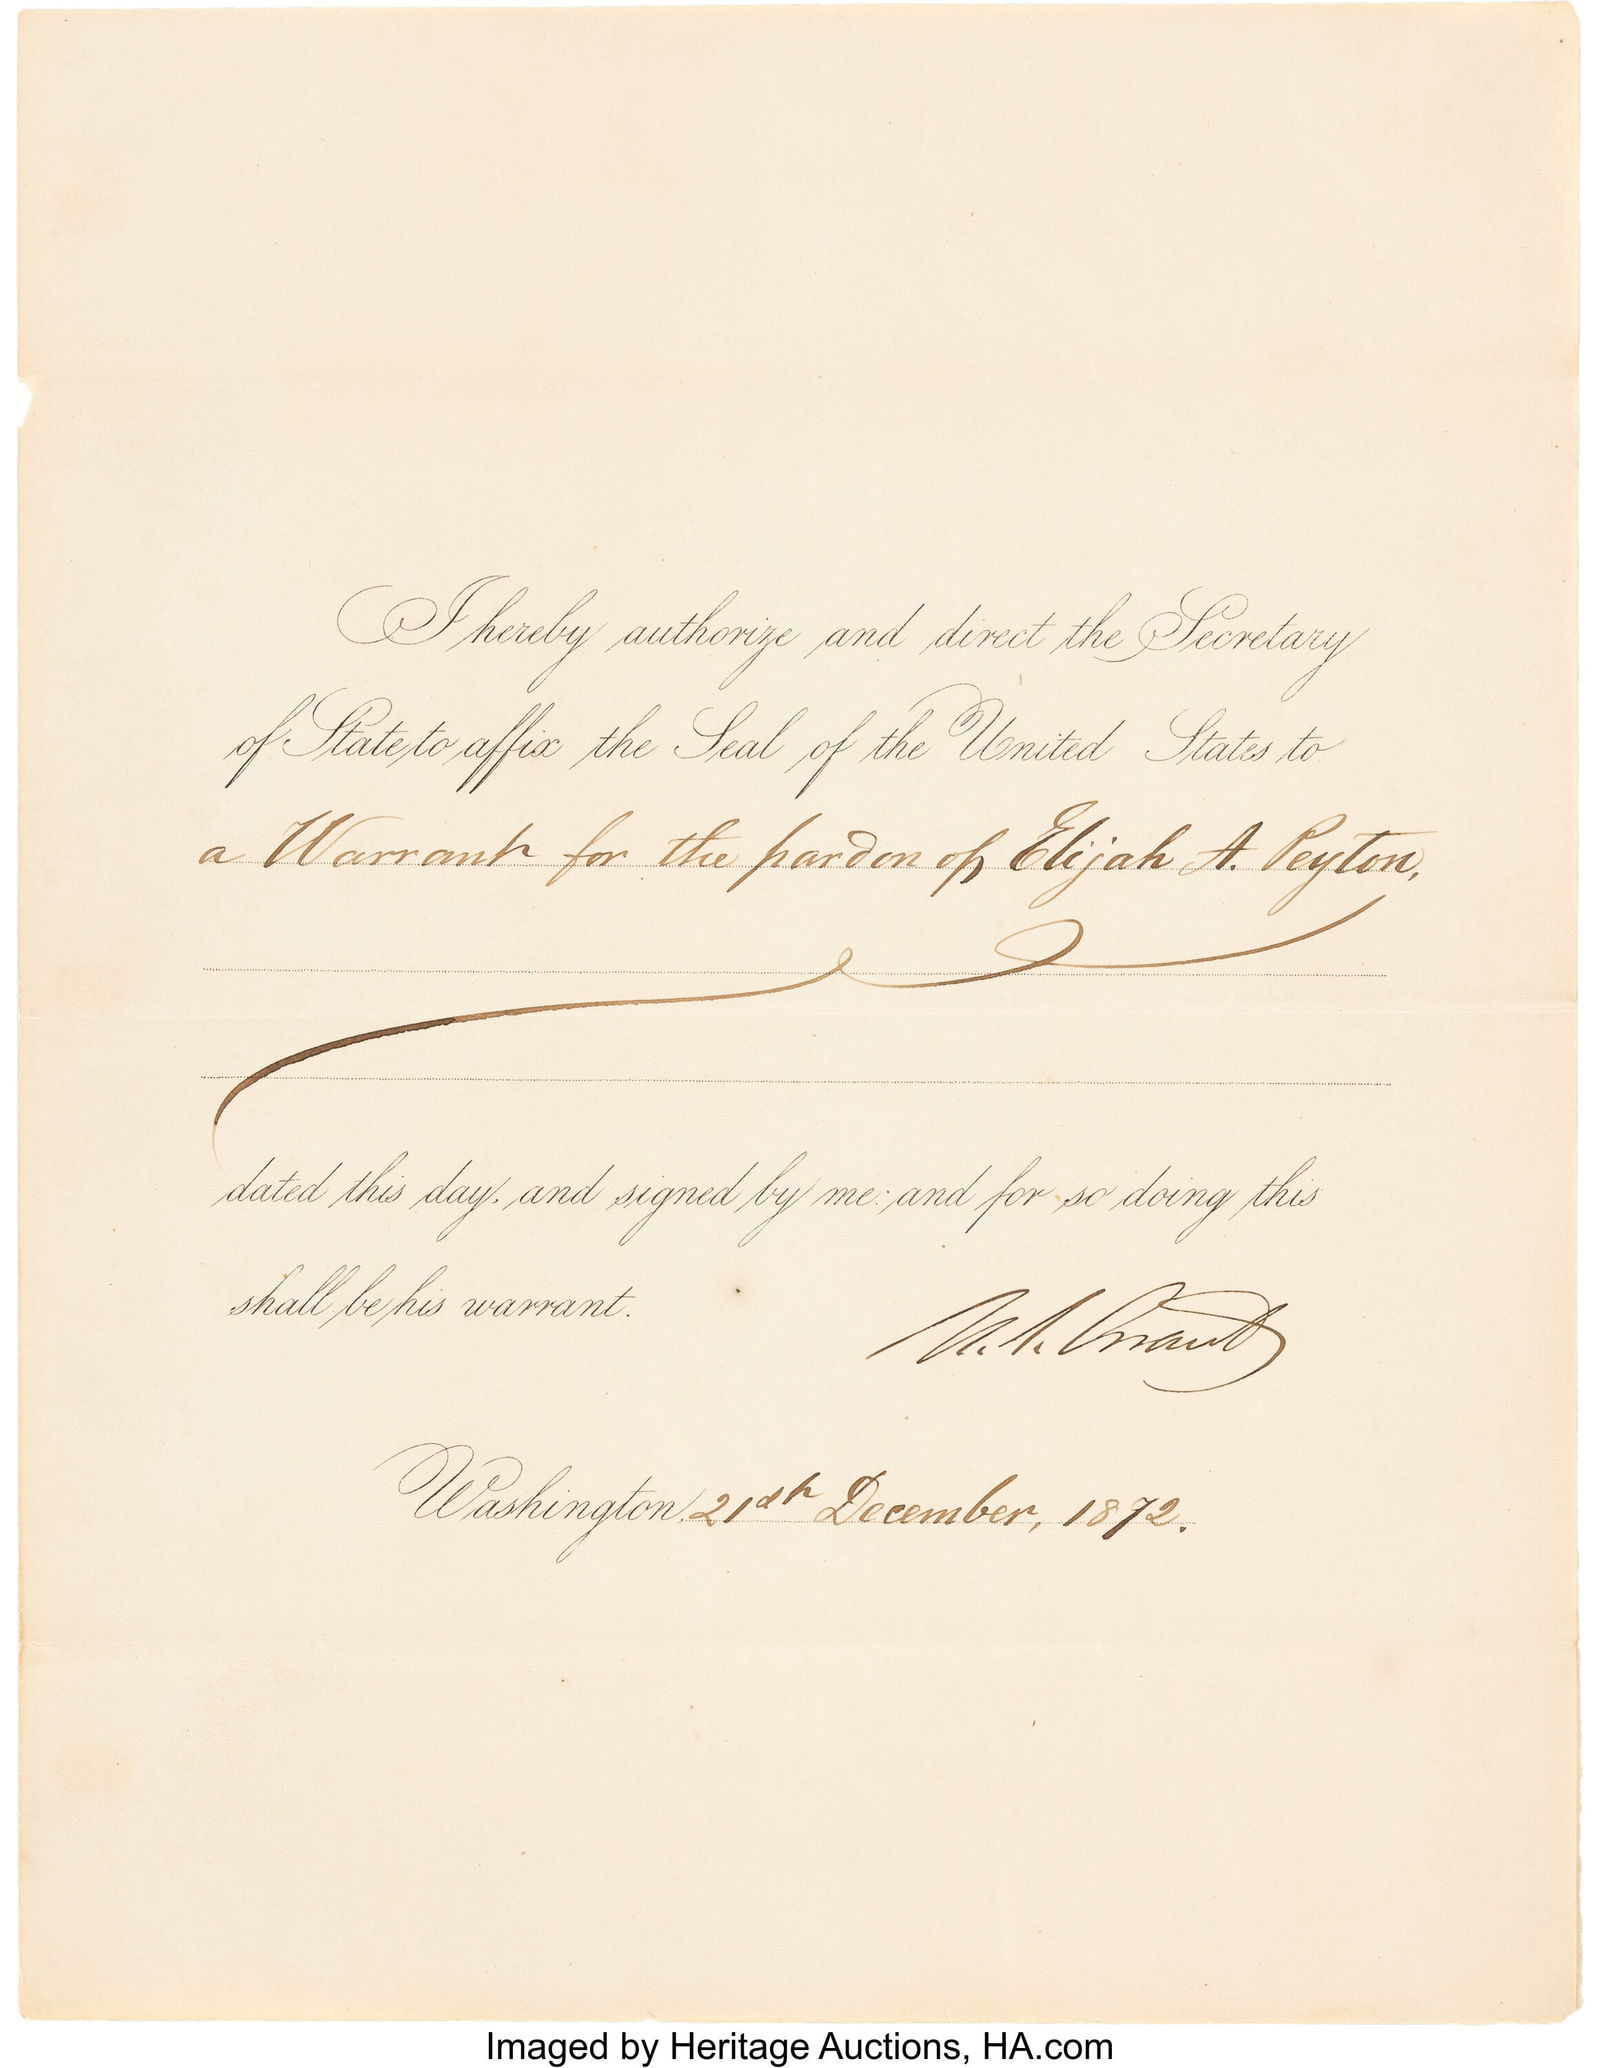 I hereby authorize and direct the Secretary
of State to affix the Seal of the United States to
a Warrant for the pardon of Elijah A. Peyton,
dated this day, and signed by me: and for so doing this
shall be his warrant.
U.S. Grant
Washington, 21st December, 1872.
Imaged by Heritage Auctions, HA.com